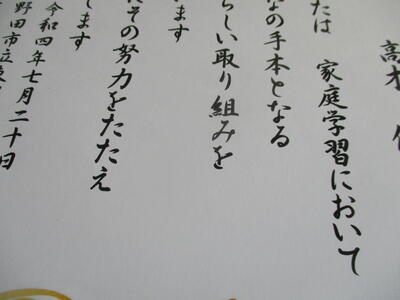 高木
たは 家庭学習において
なの手本となる
らしい取り組みを
ます
その努力をたたえ
します
令和四年七月二十日
野田市立